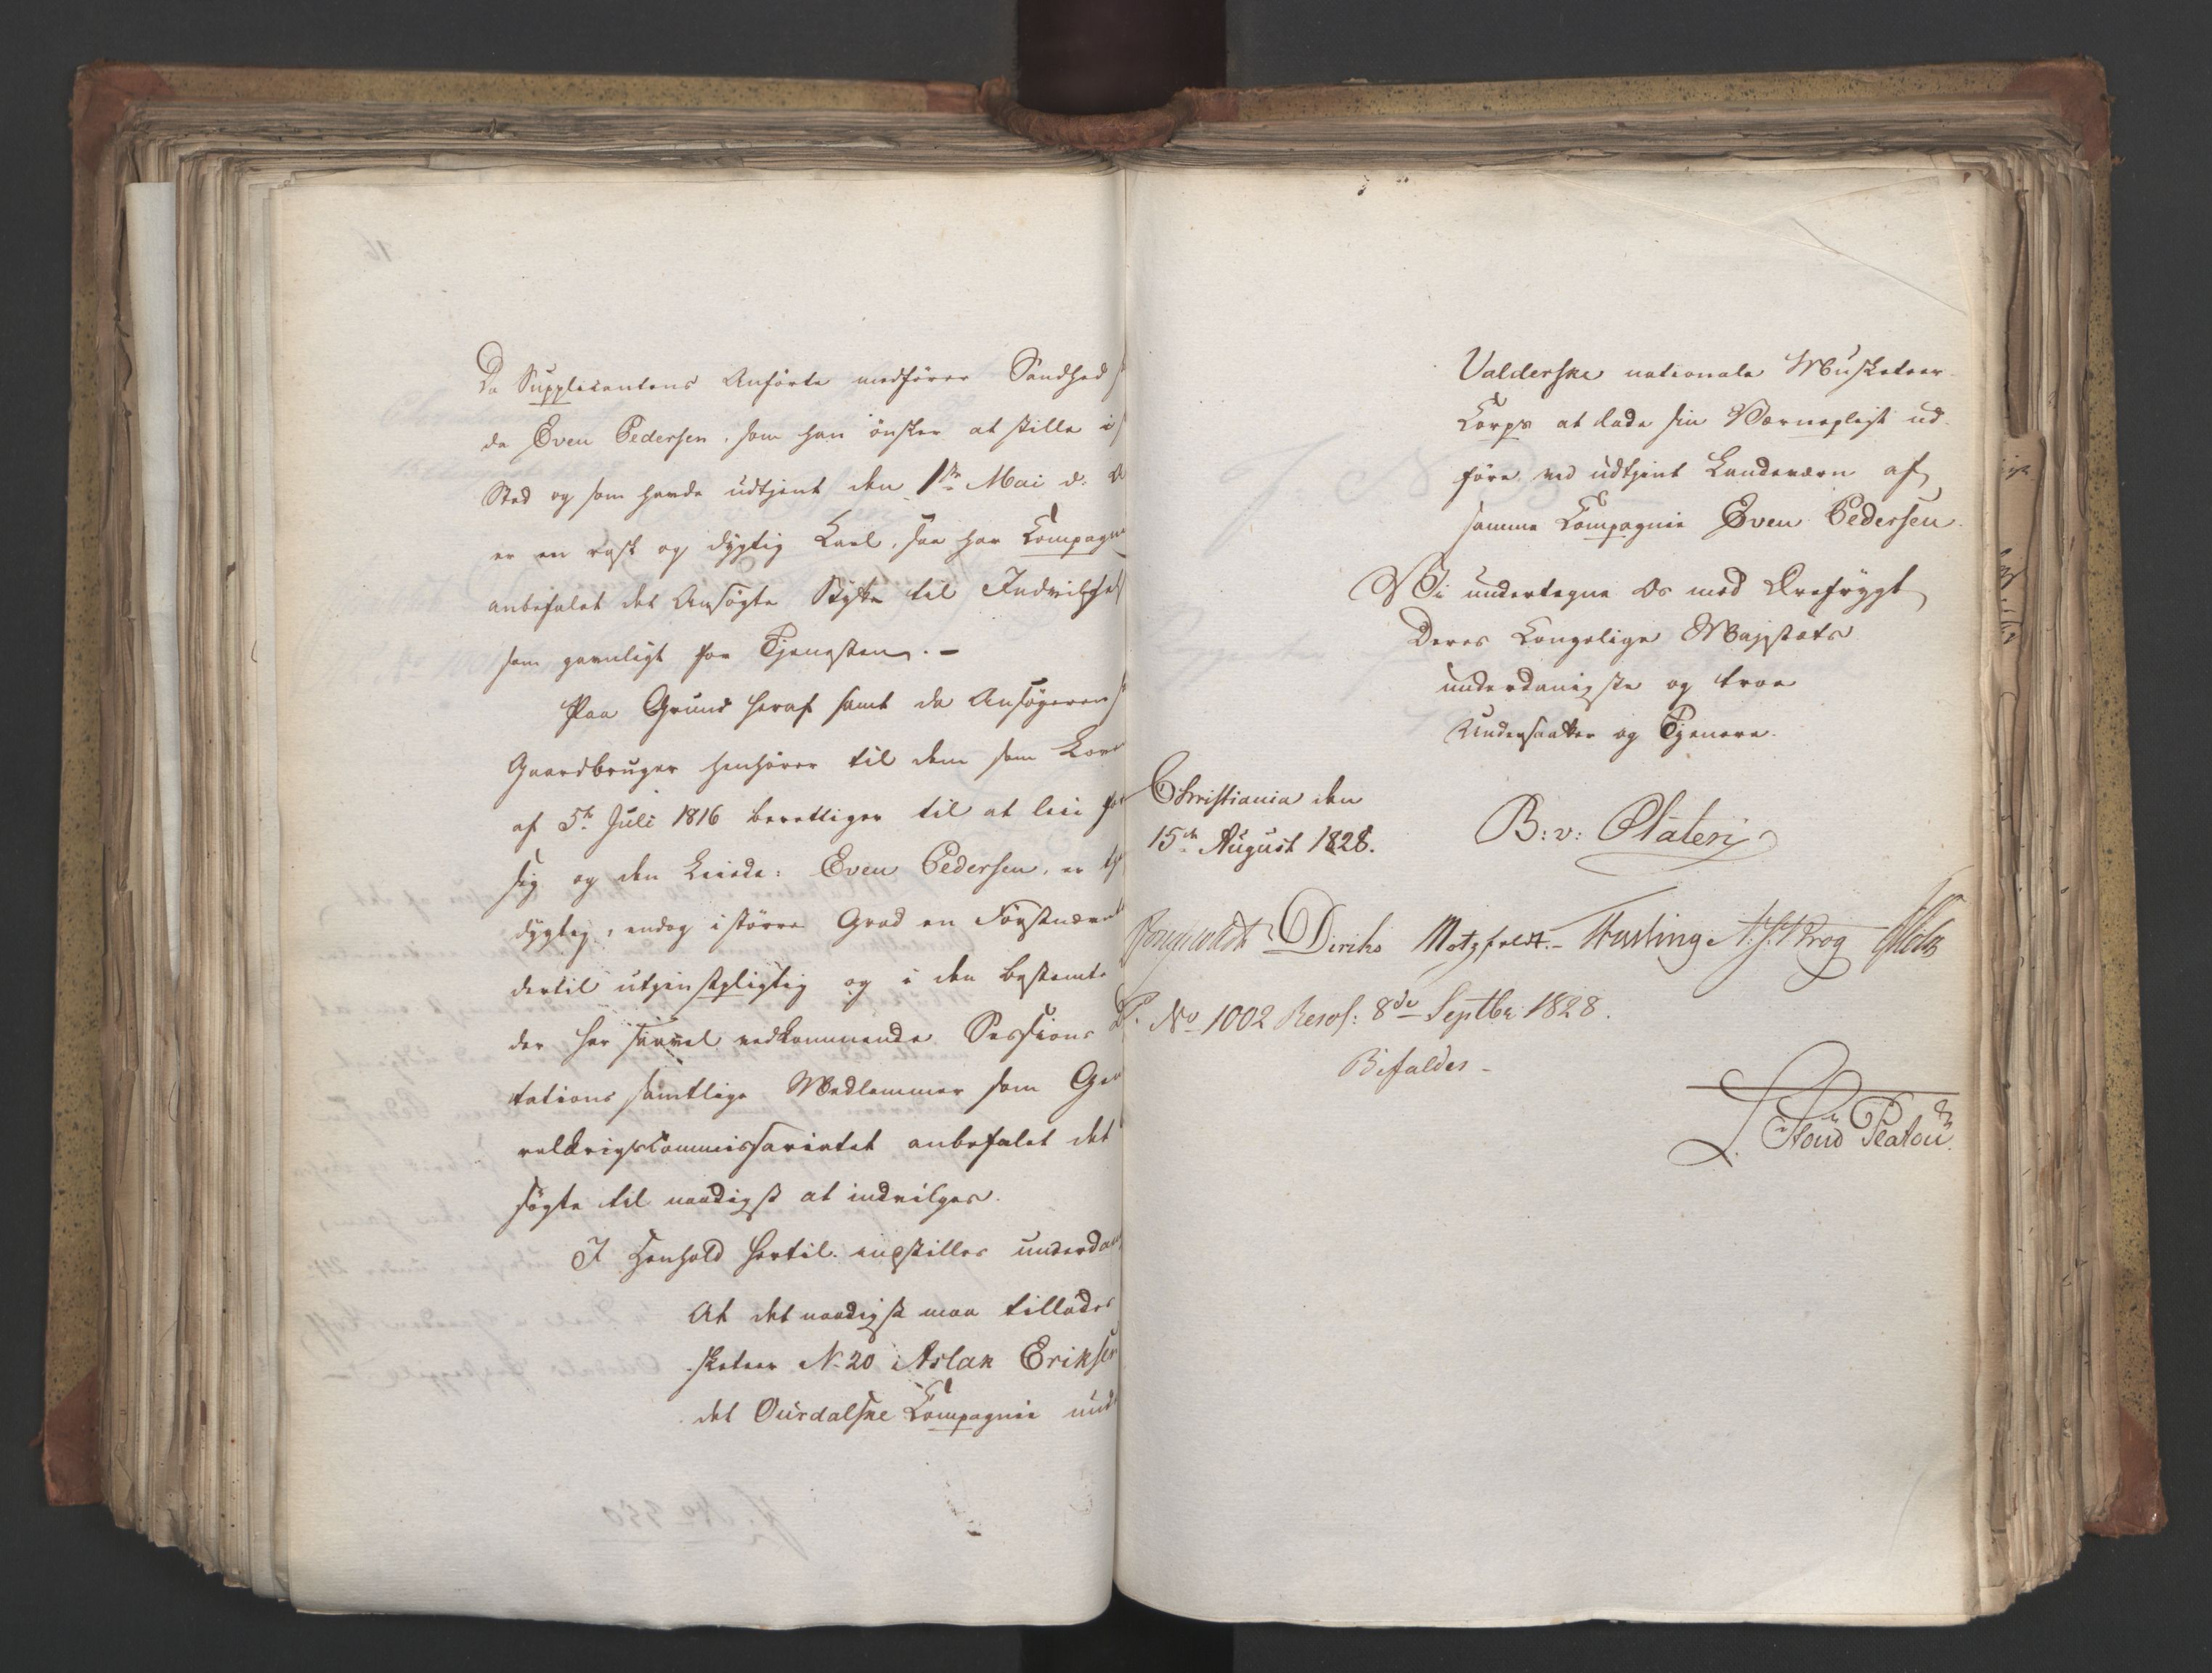 Da Supplicantens Anförte medfører Sandhed
da Even Pedersen, som han ønsker at stille i
Sted og som havde udtjent den 1ste Mai d: A
er en rask og dygtig Karl, saa har Compagn
anbefalet det Ansögte Stykke til Indvilgel
som gavnligt for Tjenesten. –
Paa Grund heraf samt da Ansögeren s
Gaardbruger henhører til dem som Lov
af 5te Juli 1816 berettiger til at leie for
sig og den Leiede: Even Pedersen, er
dygtig, endog i större Grad en Förstnævnt
dertil utjenstpligtig og i den bestemte
der har saavel vedkommende Sessions D
tations samtlige Medlemmer som Gen
ralkrigsCommissariatet anbefalet det
søgte til naadigst at indvilges.
I Henhold hertil indstilles underdan
At det naadigst maa tillades
sketeer No 20 Aslak Eriksen
det Ourdalske Compagnie und
Valderske nationale Musketeer
Corps at lade sin Værnepligt ud-
føre ved udtjent Landeværn af
samme Compagnie Even Pedersen.
Vi undertegne Os med Ærefrygt
Deres Kongelige Majestæts
underdanigste og troe
Undersaatter og Tjenere.
Christiania den
15de August 1828.
B: v: Platen
Diriks Motzfeldt. Fasting N. J. Krog
No 1002 Resol: 8de Septbr 1828.
Bifaldes –